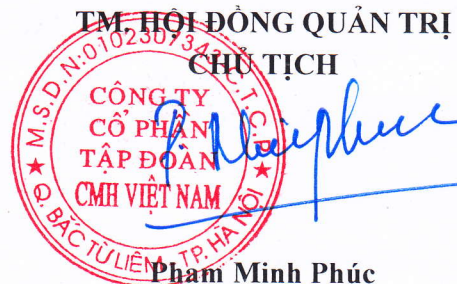 TM. HỘI ĐỒNG QUẢN TRỊ
CHỦ TỊCH
M.S.D.N:0102307343-C.T.C.P
CÔNG TY
CỔ PHẦN
TẬP ĐOÀN
CMH VIỆT NAM
Q. BẮC TỪ LIÊM - TP. HÀ NỘI
P. Minh Phuc
Phạm Minh Phúc